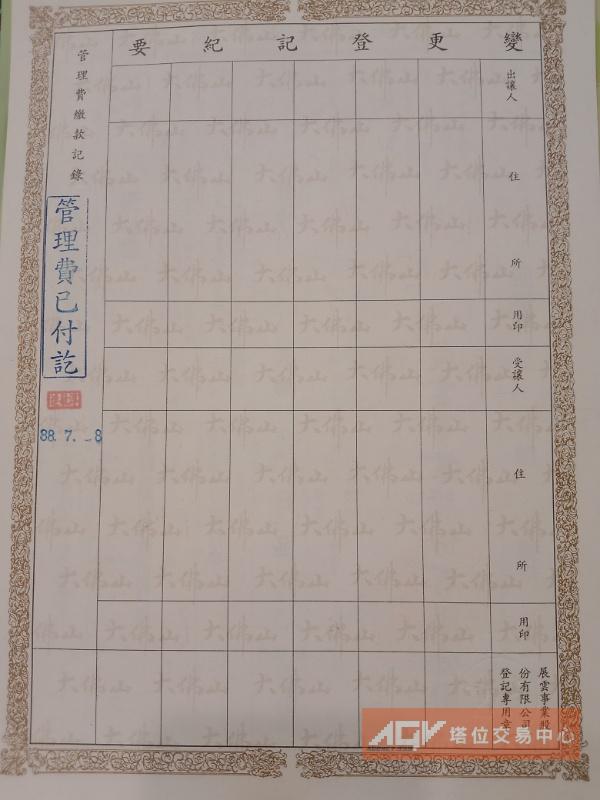 變更登記紀要
出讓人
住所
用印
受讓人
住所
用印
展雲事業股
份有限公司
登記專用章
管理費繳款記錄
管理費已付訖
88. 7. -8
大佛山
AGV 塔位交易中心